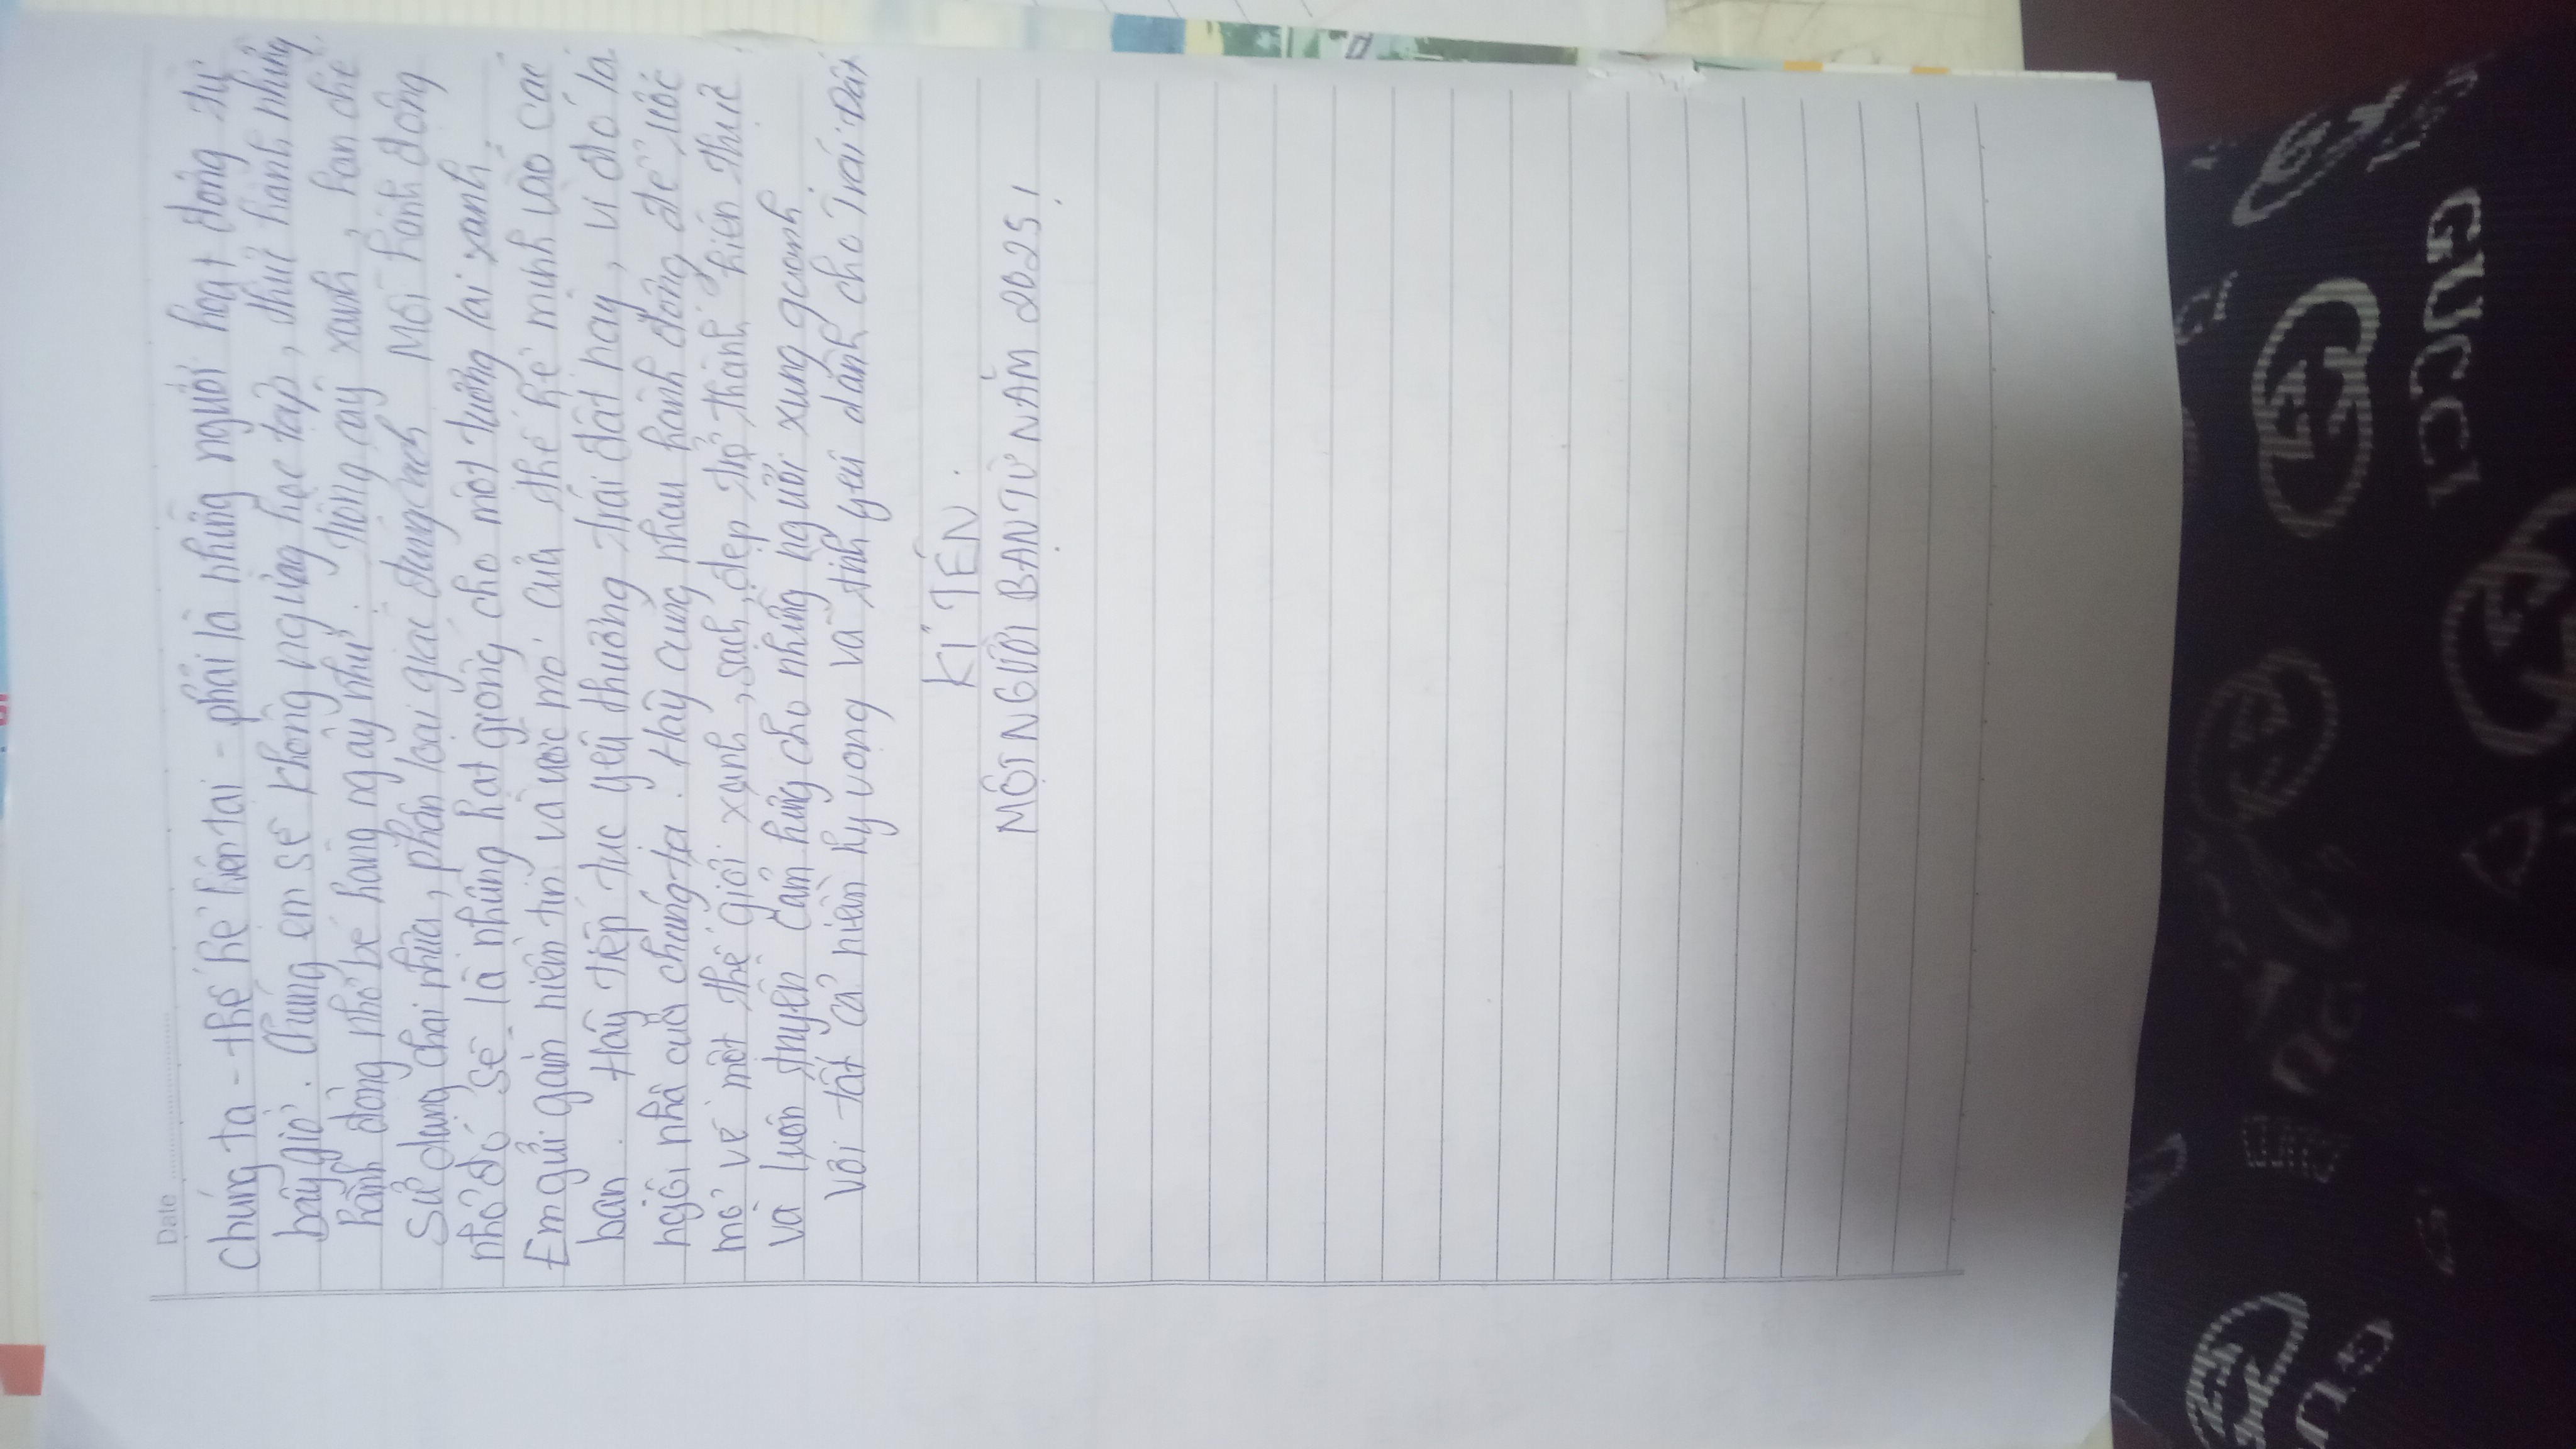 Date
Chúng ta - thế hệ hiện tại - phải là những người hoạt động từ
bây giờ. Chúng em sẽ không ngừng học tập, thực hành những
hành động nhỏ bé hàng ngày như: Trồng cây xanh, hạn chế
sử dụng chai nhựa, phân loại giác đúng cách Mỗi hành động
nhỏ đó sẽ là những hạt giống cho một tương lai xanh.
Em gửi gắm niềm tin và ước mơ của thế hệ mình vào các
bạn. Hãy tiếp tục yêu thương trái đất này, vì đó là
ngôi nhà của chúng ta. Hãy cùng nhau hành động để ước
mơ về một thế giới xanh, sạch, đẹp trở thành hiện thực
và luôn truyền cảm hứng cho những người xung quanh
Với tất cả niềm hy vọng và tình yêu dành cho Trái Đất
KÍ TÊN.
MỘT NGƯỜI BẠN TỪ NĂM 2025!
GUCCI